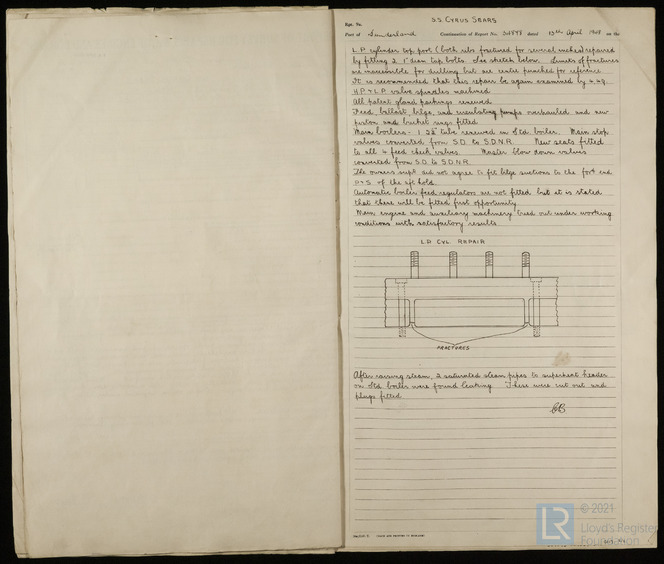 S.S. CYRUS SEARS
Rpt. 9a.
Port of Sunderland Continuation of Report No. dated 13th April 1948 on the
L.P. cylinder top port (both ribs fractured for several inches) repaired
by fitting 2, 1" diam tap bolts. See sketch below. Limits of fractures
are inaccessible for drilling but are center punched for reference.
It is recommended that this repair be again examined by 4.49.
H.P. & L.P. valve spindles machined
All patent gland packings renewed
Feed, ballast, bilge, and circulating pumps overhauled and new
piston and bucket rings fitted
Main boilers - 1 tube renewed in Std. boiler. Main stop
valves converted from S.D. to S.D.N.R. New seats fitted
to all 4 feed check valves. Master blow down valves
converted from S.D. to S.D.N.R.
The owners supt did not agree to fit bilge suctions to the ford end
P & S of the aft hold.
Automatic boiler feed regulators are not fitted but it is stated
that these will be fitted first opportunity
Main engine and auxiliary machinery tried out under working
conditions with satisfactory results
L.P. CYL REPAIR
FRACTURES
After raising steam, 2 saturated steam pipes to superheat header
on Std boiler were found leaking. These were cut out and
plugs fitted
© 2021
LR
Lloyd's Register
Foundation